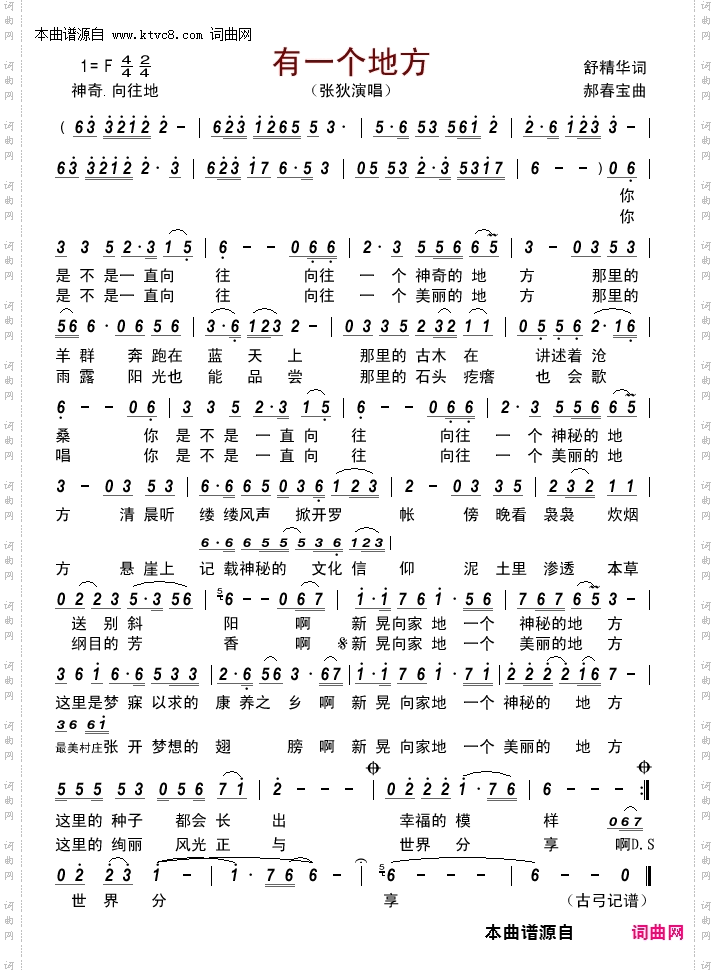 本曲谱源自 www.ktvc8.com 词曲网
1= F 4/4 2/4
有一个地方
舒精华词
神奇.向往地
（张狄演唱）
郝春宝曲
( 63 3212 2 - | 623 1265 5 3 | 5·6 53 561 2 | 2·6 123 3 - |
63 3212 2·3 | 623 17 6·5 3 | 05 53 2·3 5317 | 6 - - ) 06 |
你
你
3 3 5 2·3 1 5 | 6 - - 066 | 2·3 556 65 | 3 - 03 53 |
是 不 是一 直向 往 向往 一 个 神奇的 地 方 那里的
是 不 是一 直向 往 向往 一 个 美丽的 地 方 那里的
56 6·06 56 | 3·6 123 2 - | 03 35 232 11 | 05 556 2·16 |
羊 群 奔 跑在 蓝 天 上 那里的 古木 在 讲述着 沧
雨 露 阳 光也 能 品 尝 那里的 石头 疙瘩 也 会 歌
6 - - 06 | 3 3 5 2·3 15 | 6 - - 066 | 2·3 556 65 |
桑 你 是 不 是 一 直向 往 向往 一 个 神秘的 地
唱 你 是 不 是 一 直向 往 向往 一 个 美丽的 地
3 - 03 53 | 6·6 65 036 123 | 2 - 03 35 | 232 11 |
方 清 晨听 缕 缕风声 掀开罗 帐 傍 晚看 袅袅 炊烟
6·6 655 536 123 |
方 悬 崖上 记 载神秘的 文化 信 仰 泥 土里 渗透 本草
02 23 5·3 56 | 6 - - 067 | 1·1 761·56 | 77 67 65 3 - |
送 别 斜 阳 啊 新 晃向家 地 一个 神秘的 地 方
纲目的 芳 香 啊 新 晃向家 地 一个 美丽的 地 方
3 6 1 6·6 533 | 2·6 56 3·67 | 1·1 761 71 | 222 216 7 - |
这里是梦 寐 以求的 康 养之 乡 啊 新 晃 向家地 一个 神秘的 地 方
36 61
最美村庄张 开 梦想的 翅 膀 啊 新 晃 向家地 一个 美丽的 地 方
555 53 056 71 | 2 - - - | 02 22 1·76 | 6 - - - :|
这里的 种子 都会 长 出 幸福的 模 样 067
这里的 绚丽 风光 正 与 世界 分 享 啊D.S
02 02 1 - | 1·76 6 - | 6 - - - | 6 - - 0 ‖
世 界 分 享 （古弓记谱）
本曲谱源自 词曲网